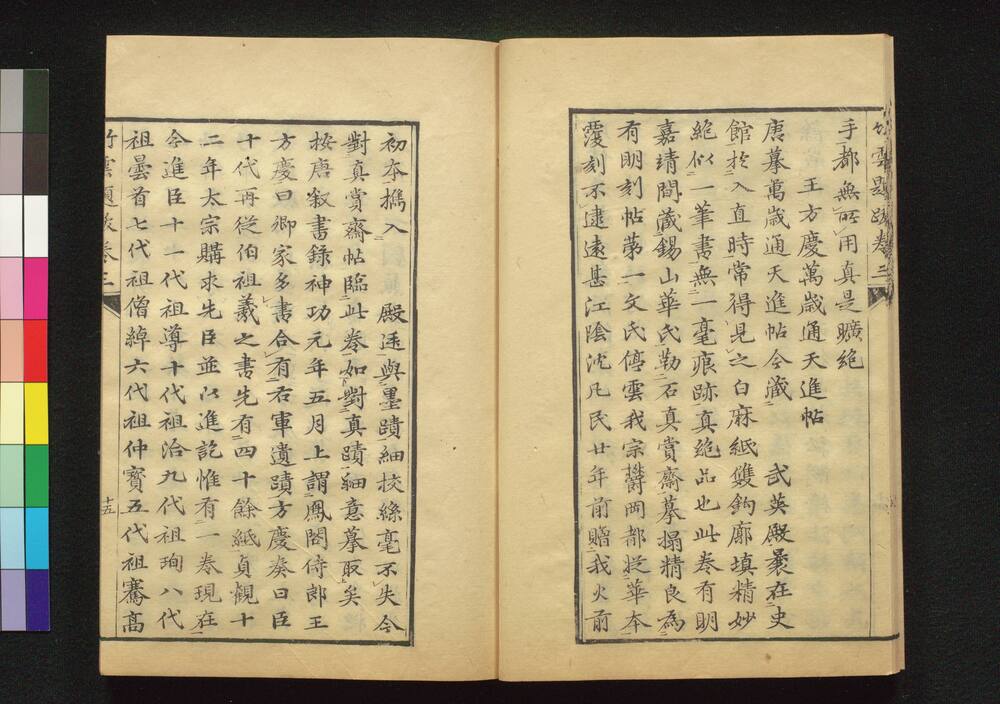 竹雲題跋卷三
手都無所用真是曠絶
王方慶萬歲通天進帖
唐摹萬歲通天進帖今藏 武英殿曩在史
館於入直時常得見之白麻紙雙鉤廓填精妙
絶似一筆書無一毫痕跡真絶品也此卷有明
嘉靖間藏錫山華氏勒石真賞齋摹搨精良為
有明刻帖第一文氏停雲我宗欝岡都從華本
覆刻不逮遠甚江陰沈凡民廿年前贈我火前
初本攜入 殿廷與墨蹟細挍絲毫不失今
對真賞齋帖臨此卷如對真蹟細意摹取矣
按唐叙書錄神功元年五月上謂鳳閣侍郎王
方慶曰卿家多書合有右軍遺蹟方慶奏曰臣
十代再從伯祖羲之書先有四十餘紙貞觀十
二年太宗購求先臣並以進訖惟有一卷現在
今進臣十一代祖導十代祖洽九代祖珣八代
祖曇首七代祖僧綽六代祖仲寶五代祖騫高
竹雲題跋卷三
十五